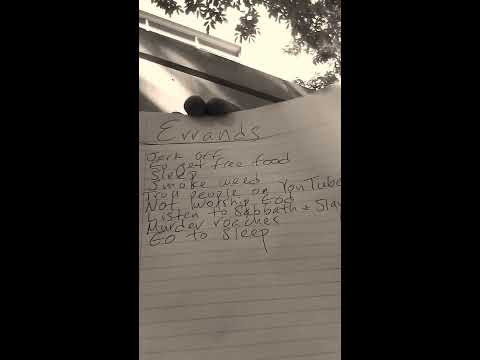 Errands
Jerk off
Go get free food
Sleep
Smoke weed
Troll people on YouTube
Not worship God
Listen to Sabbath + Slay
Murder roaches
Go to sleep